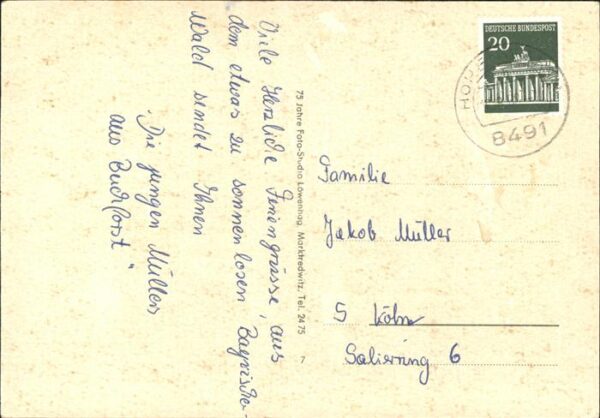 Viele Herzliche Feriengrüsse, aus
dem etwas zu sonnen losen Bayrischen-
Wald sendet Ihnen
"Die jungen Müllers
aus Buchforst"
75 Jahre Foto-Studio Löwenhag, Marktredwitz, Tel. 2475
7
DEUTSCHE BUNDESPOST
20
8491
Familie
Jakob Müller
5 Köln
Salierring 6